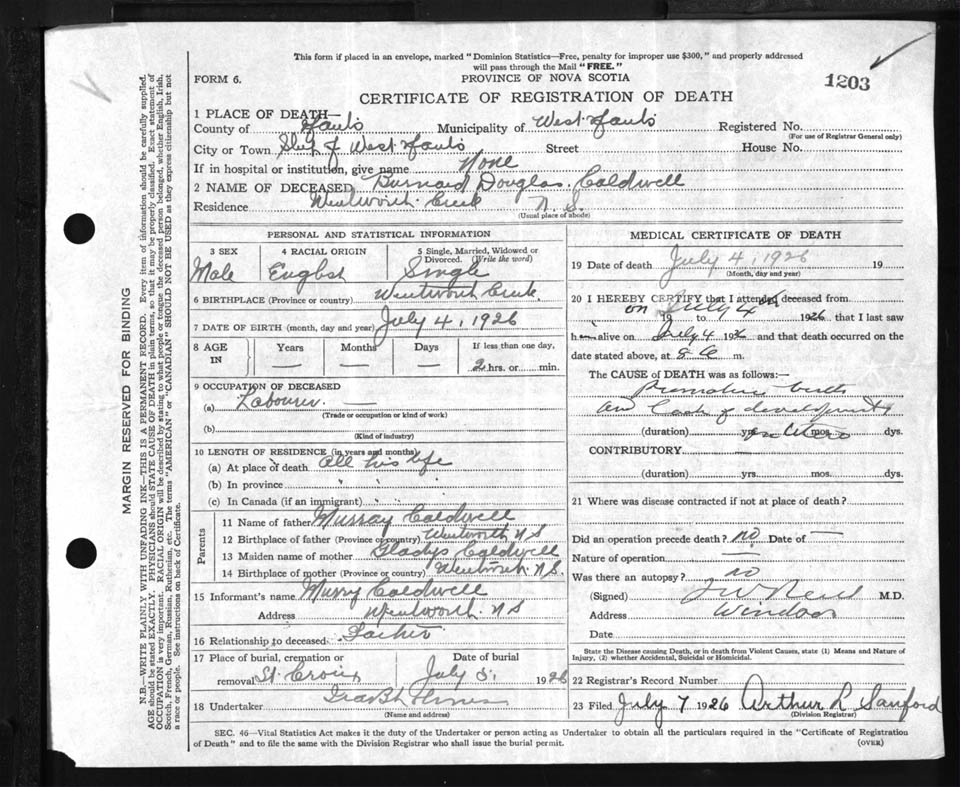 This form if placed in an envelope, marked "Dominion Statistics—Free, penalty for improper use $300," and properly addressed
will pass through the Mail "FREE."
FORM 6.
PROVINCE OF NOVA SCOTIA
1203
CERTIFICATE OF REGISTRATION OF DEATH
1 PLACE OF DEATH—
County of Hants Municipality of West Hants Registered No.
(For use of Registrar General only)
City or Town of West Hants Street House No.
If in hospital or institution, give name None
2 NAME OF DECEASED Burnard Douglas Caldwell
Residence Wentworth Creek N.S.
(Usual place of abode)
PERSONAL AND STATISTICAL INFORMATION
3 SEX 4 RACIAL ORIGIN 5 Single, Married, Widowed or
Divorced. (Write the word)
Male English Single
6 BIRTHPLACE (Province or country) Wentworth Creek
7 DATE OF BIRTH (month, day and year) July 4, 1926
8 AGE IN Years Months Days If less than one day,
— — — 2 hrs. or min.
9 OCCUPATION OF DECEASED
(a) Labourer —
(Trade or occupation or kind of work)
(b)
(Kind of industry)
10 LENGTH OF RESIDENCE (in years and months)
(a) At place of death all his life
(b) In province " " "
(c) In Canada (if an immigrant) " " "
Parents
11 Name of father Murray Caldwell
12 Birthplace of father (Province or country) Wentworth N S
13 Maiden name of mother Gladys Caldwell
14 Birthplace of mother (Province or country) Wentworth N.S.
15 Informant's name Murry Caldwell
Address Wentworth N S
16 Relationship to deceased Father
17 Place of burial, cremation or Date of burial
removal St. Croix July 5, 1926
18 Undertaker
(Name and address)
MEDICAL CERTIFICATE OF DEATH
19 Date of death July 4, 1926 19
(Month, day and year)
20 I HEREBY CERTIFY that I attended deceased from
on July 4
19 to 1926 that I last saw
h alive on July 4 1926 and that death occurred on the
date stated above, at m.
The CAUSE of DEATH was as follows:—
Premature birth
and Lack of development
(duration) yrs. mos. dys.
CONTRIBUTORY
(duration) yrs. mos. dys.
21 Where was disease contracted if not at place of death?
Did an operation precede death? no Date of —
Nature of operation —
Was there an autopsy? no
(Signed) M.D.
Address Windsor
Date
State the Disease causing Death, or in death from Violent Causes, state (1) Means and Nature of
Injury, (2) whether Accidental, Suicidal or Homicidal.
22 Registrar's Record Number
23 Filed July 7 1926 Arthur L Sanford
(Division Registrar)
SEC. 46—Vital Statistics Act makes it the duty of the Undertaker or person acting as Undertaker to obtain all the particulars required in the "Certificate of Registration
of Death" and to file the same with the Division Registrar who shall issue the burial permit.
(OVER)
MARGIN RESERVED FOR BINDING
N.B.—WRITE PLAINLY WITH UNFADING INK—THIS IS A PERMANENT RECORD. Every item of information should be carefully supplied.
AGE should be stated EXACTLY. PHYSICIANS should STATE CAUSE OF DEATH in plain terms, so that it may be properly classified. Exact statement of
OCCUPATION is very important. RACIAL ORIGIN will be described by stating to what people or tongue the deceased person belonged, whether English, Irish,
Scotch, French, German, Russian, Ruthenian, etc. The terms "AMERICAN" or "CANADIAN" SHOULD NOT BE USED as they express citizenship but not
a race or people. See instructions on back of Certificate.